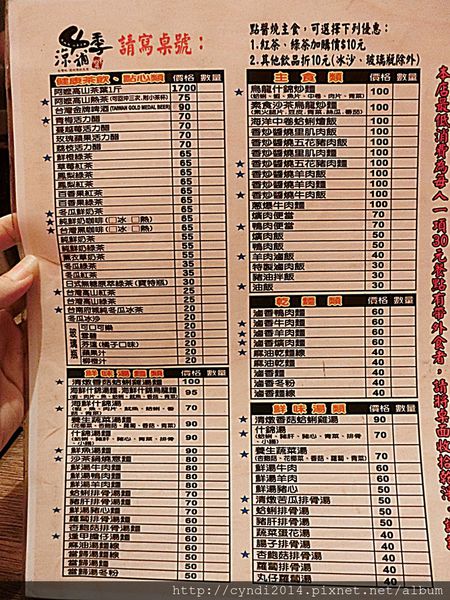 四季
涼舖
請寫桌號：
點醬燒主食，可選擇下列優惠：
1.紅茶、綠茶加購價$10元
2.其他飲品折10元(冰沙、玻璃瓶除外)
健康茶飲、點心類 價格 數量
阿嬤高山茶葉1斤 1700
90
青梅活力醋 70
蔓越莓活力醋 70
玫瑰蘋果活力醋 70
荔枝活力醋 70
鮮橙綠茶 65
草莓紅茶 65
鳳梨綠茶 65
鳳梨紅茶 65
百香果紅茶 65
百香果綠茶 65
冬瓜鮮奶 65
純鮮奶咖啡(□冰 □熱) 65
台灣黑咖啡(□冰 □熱) 55
純鮮奶茶 55
純鮮奶綠茶 55
薰衣草奶茶 55
冬瓜綠茶 35
冬瓜紅茶 35
日式無糖原萃綠茶(寶特瓶) 30
台灣高山紅茶 25
台灣高山綠茶 25
冬瓜冰沙
玻璃瓶
可口可樂 20
雪碧 20
芬達(橘子口味) 20
蘋果汁 20
柳橙汁 20
鮮味湯麵類 價格 數量
清燉香菇蛤蜊雞湯麵 100
海鮮什錦湯麵.海鮮什錦烏龍麵 95
海鮮什錦湯 90
養生蔬菜湯麵 70
什錦湯麵 70
鮮魚湯麵 80
沙茶鍋燒意麵 80
鮮湯牛肉麵 80
鮮湯羊肉麵 80
鮮湯豬肉麵 60
蛤蜊排骨湯麵 60
豬肝排骨湯麵 60
鮮湯豬心麵 60
蘿蔔排骨湯麵 60
杏鮑菇排骨湯麵 60
逢甲擔仔湯麵 50
當歸麻油麵線 50
當歸湯麵線 50
當歸湯麵 50
當歸湯冬粉 50
主食類 價格 數量
烏龍什錦炒麵 100
素食沙茶烏龍炒麵 100
海洋中卷蛤蜊燴飯 100
香炒醬燒里肌肉飯 100
香炒醬燒五花豬肉飯 100
香炒醬燒里肌肉麵 100
香炒醬燒五花豬肉麵 100
香炒醬燒羊肉麵 100
香炒醬燒羊肉飯 100
香炒醬燒牛肉飯 100
蔥爆牛肉麵 100
爌肉便當 70
鴨肉便當 70
鴨肉飯 50
爌肉飯 50
羊肉滷飯 50
特製滷肉飯 30
豬油拌飯 30
油飯 30
乾麵類 價格 數量
滷香鴨肉麵 60
滷香爌肉麵 60
滷香羊肉麵 60
麻油乾麵線 40
麻醬麵 40
滷香麵 40
滷香冬粉 40
滷香麵線 40
鮮味湯類 價格 數量
清燉香菇蛤蜊雞湯 90
什錦湯 70
養生蔬菜湯 70
鮮湯牛肉 60
鮮湯羊肉 60
鮮湯豬心 60
清燉苦瓜排骨湯 50
豬肝排骨湯 50
蔬菜蛋花湯 50
腸子排骨湯 50
杏鮑菇排骨湯 50
蘿蔔排骨湯 50
丸仔蘿蔔湯 50
本店最低消費為每人一項30元餐點有帶外食者，請將桌面收拾乾淨，
http://cyndi2014.pixnet.net/album